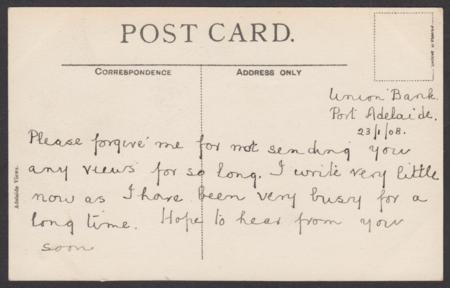 POST CARD.
CORRESPONDENCE
ADDRESS ONLY
Union Bank.
Port Adelaide.
23/1/08.
Please forgive me for not sending you
any views for so long. I write very little
now as I have been very busy for a
long time. Hope to hear from you
soon
Adelaide Views.